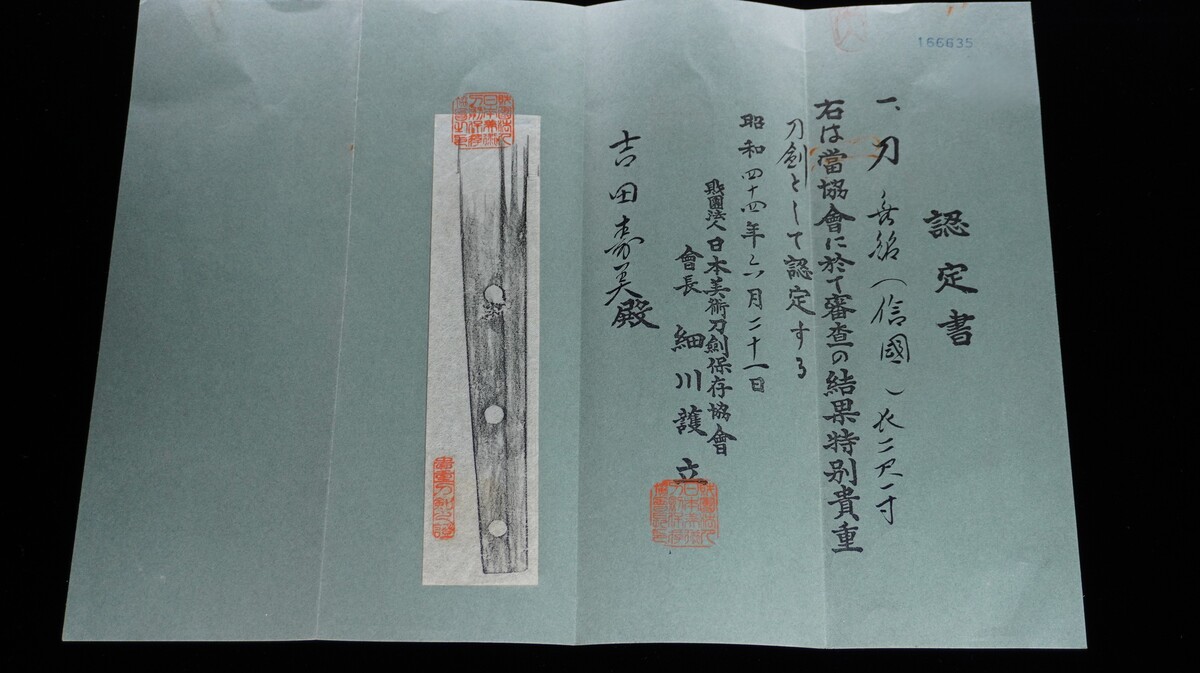 166635
認定書
一、刀 無銘(信國)長二尺一寸
右は當協會に於て審査の結果特別貴重
刀劍として認定する
昭和四十四年六月二十一日
財團法人日本美術刀劍保存協會
會長 細川護立
吉田寿美殿
貴重刀劍之證